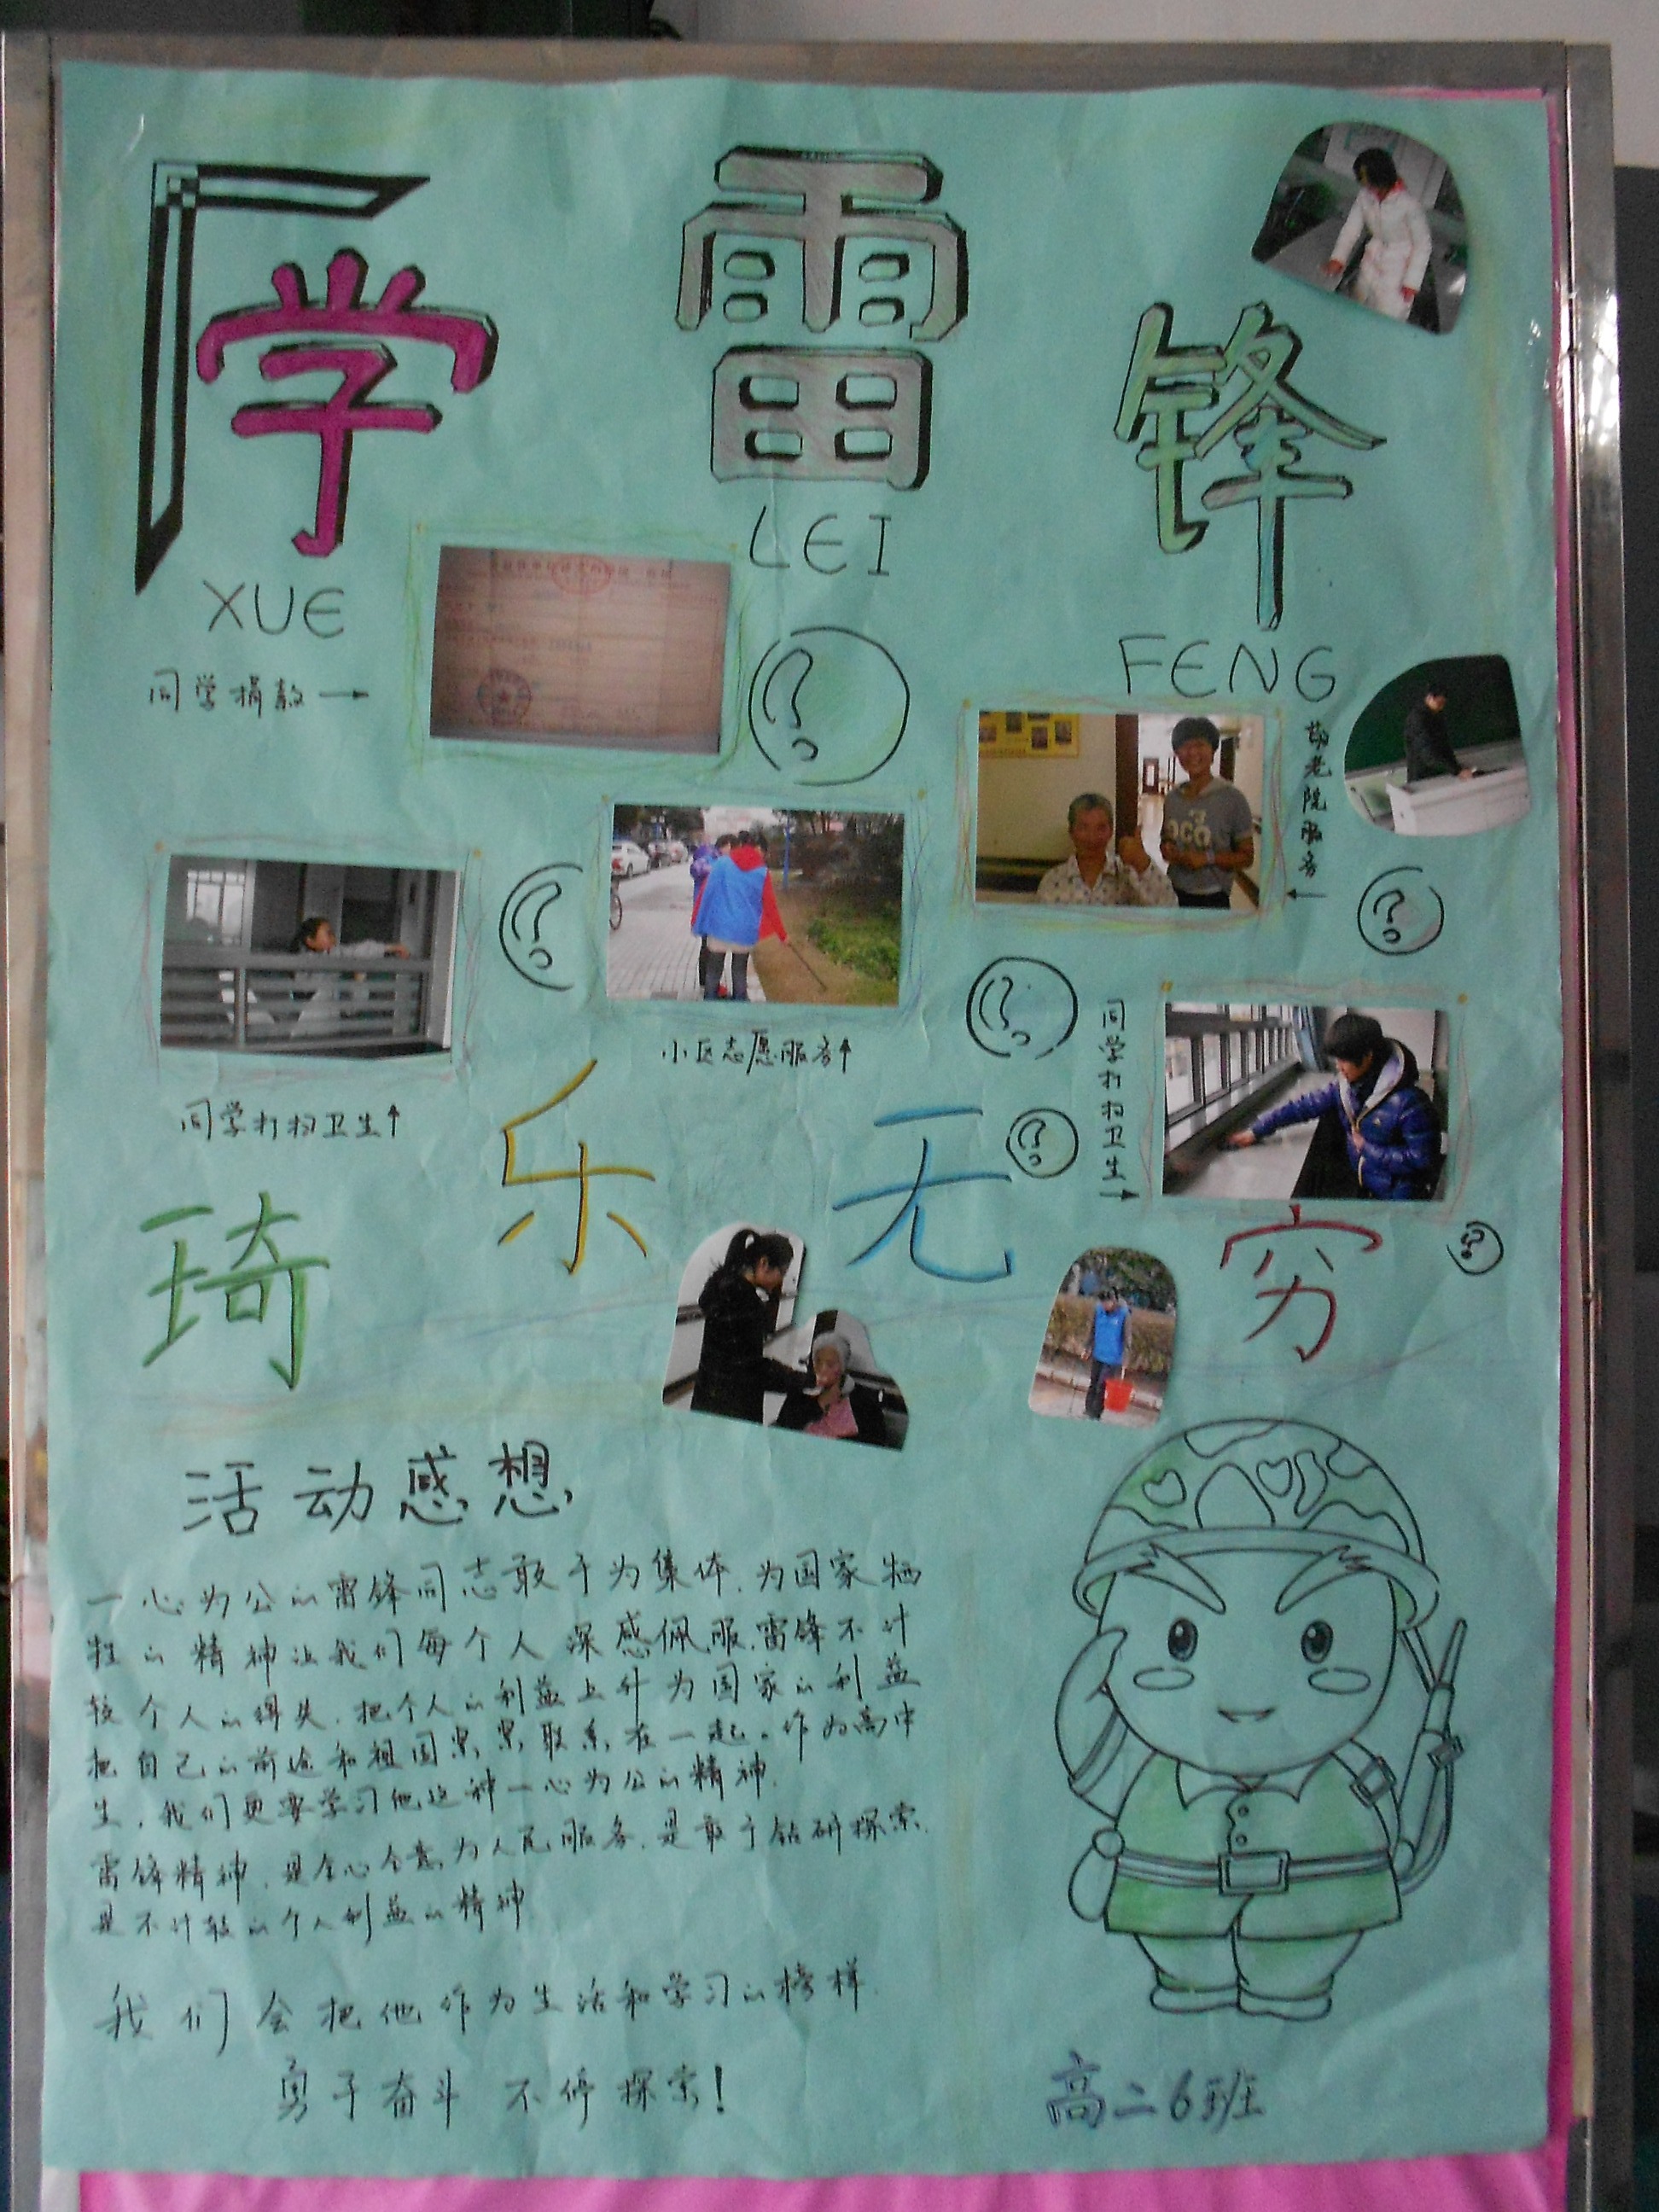 学雷锋
XUE
LEI
FENG
同学捐款
敬老院服务
小区志愿服务
同学打扫卫生
同学打扫卫生
琦乐无穷
活动感想
一心为公的雷锋同志敢于为集体.为国家牺
牲的精神让我们每个人深感佩服.雷锋不计
较个人的得失.把个人的利益上升为国家的利益
把自己的前途和祖国紧紧联系在一起。作为高中
生,我们更要学习他这种一心为公的精神.
雷锋精神.是全心全意为人民服务.是敢于钻研探索.
是不计较的个人利益的精神
我们会把他作为生活和学习的榜样.
勇于奋斗 不停探索!
高二6班